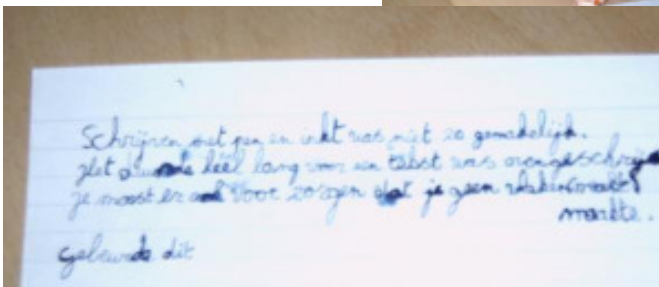 Schrijven met pen en inkt was niet zo gemakelijk.
Het duurde heel lang voor een tekst was overgeschrij
je moest er ook voor zorgen dat je geen vlekken maakt
markte.
gebeurde dit